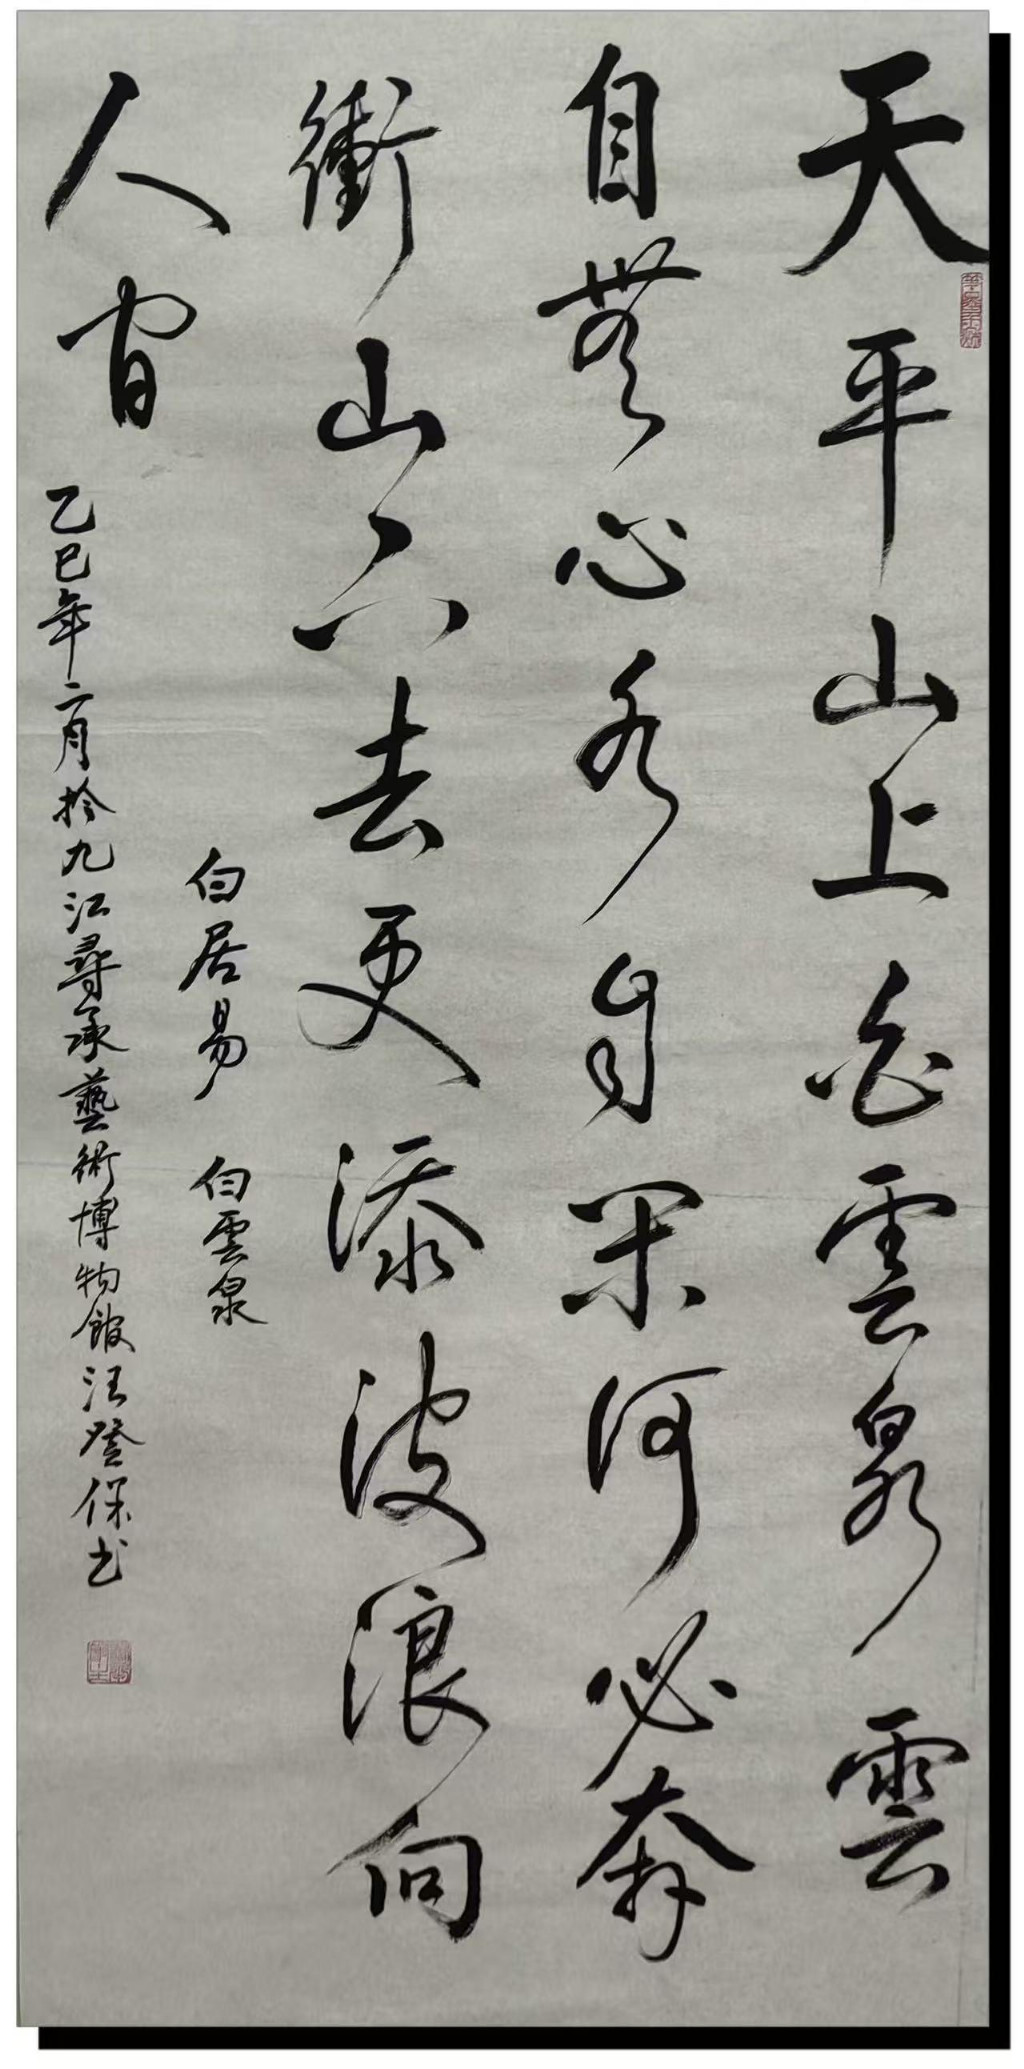 天平山上白雲泉雲
自無心水自閑何必奔
衝山下去更添波浪向
人間
白居易 白雲泉
乙巳年二月拾九江尋承藝術博物館汪登保书